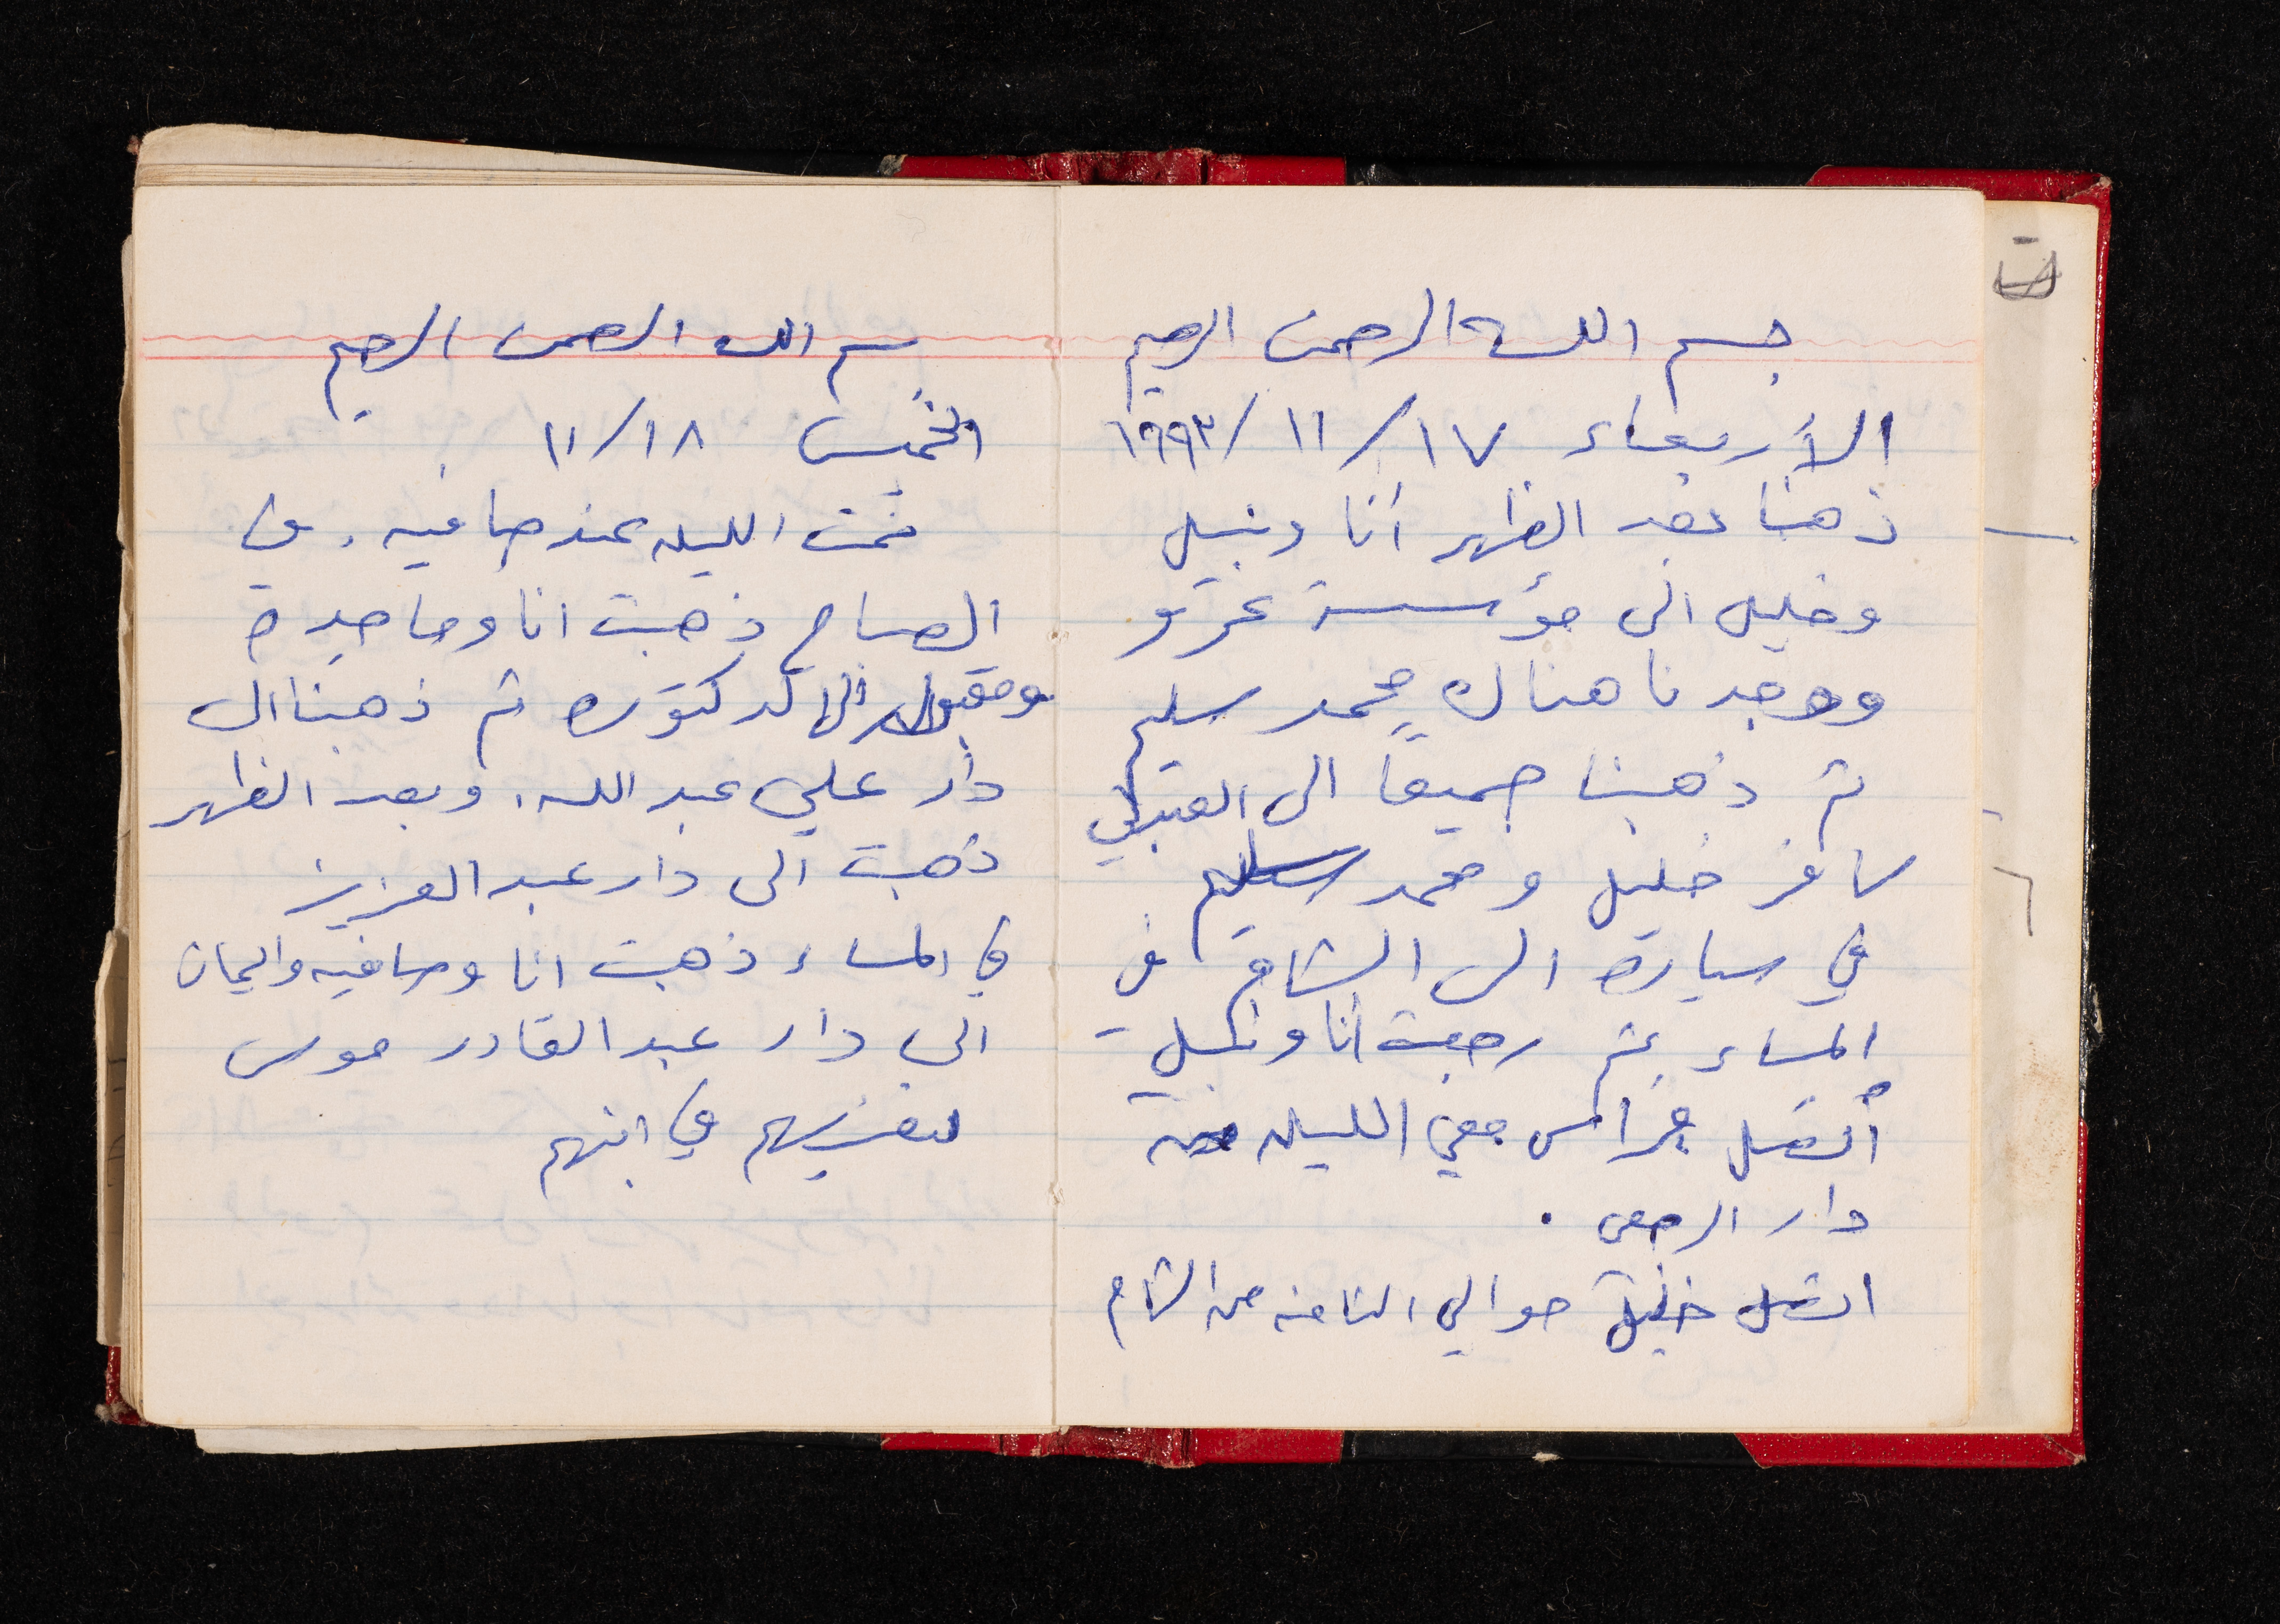 بسم الله الرحمن الرحيم
الأربعاء ١٧/١١/١٩٩٣
ذهبنا بعد الظهر أنا ونبيل
وخليل الى مؤسسة
ووجدنا هناك محمد سليم
ثم ذهبنا جميعاً الى العبدلي
سافر خليل ومحمد سليم
في سيارة الى الشام في
المساء ثم رجعت أنا ونبيل
أتصل معي الليله من
دار
اتصل خليل حوالي الثامنه من الشام
بسم الله الرحمن الرحيم
الخميس ١٨/١١
نمت الليله عند صافيه. وفي
الصباح ذهبت انا وماجدة
الدكتوره ثم ذهبنا الى
دار علي عبد الله. وبعد الظهر
ذهبت الى دار عبد العزيز
في المساء ذهبت انا وصافيه وايمان
الى دار عبد القادر موسى
لنعزيهم في ابنهم